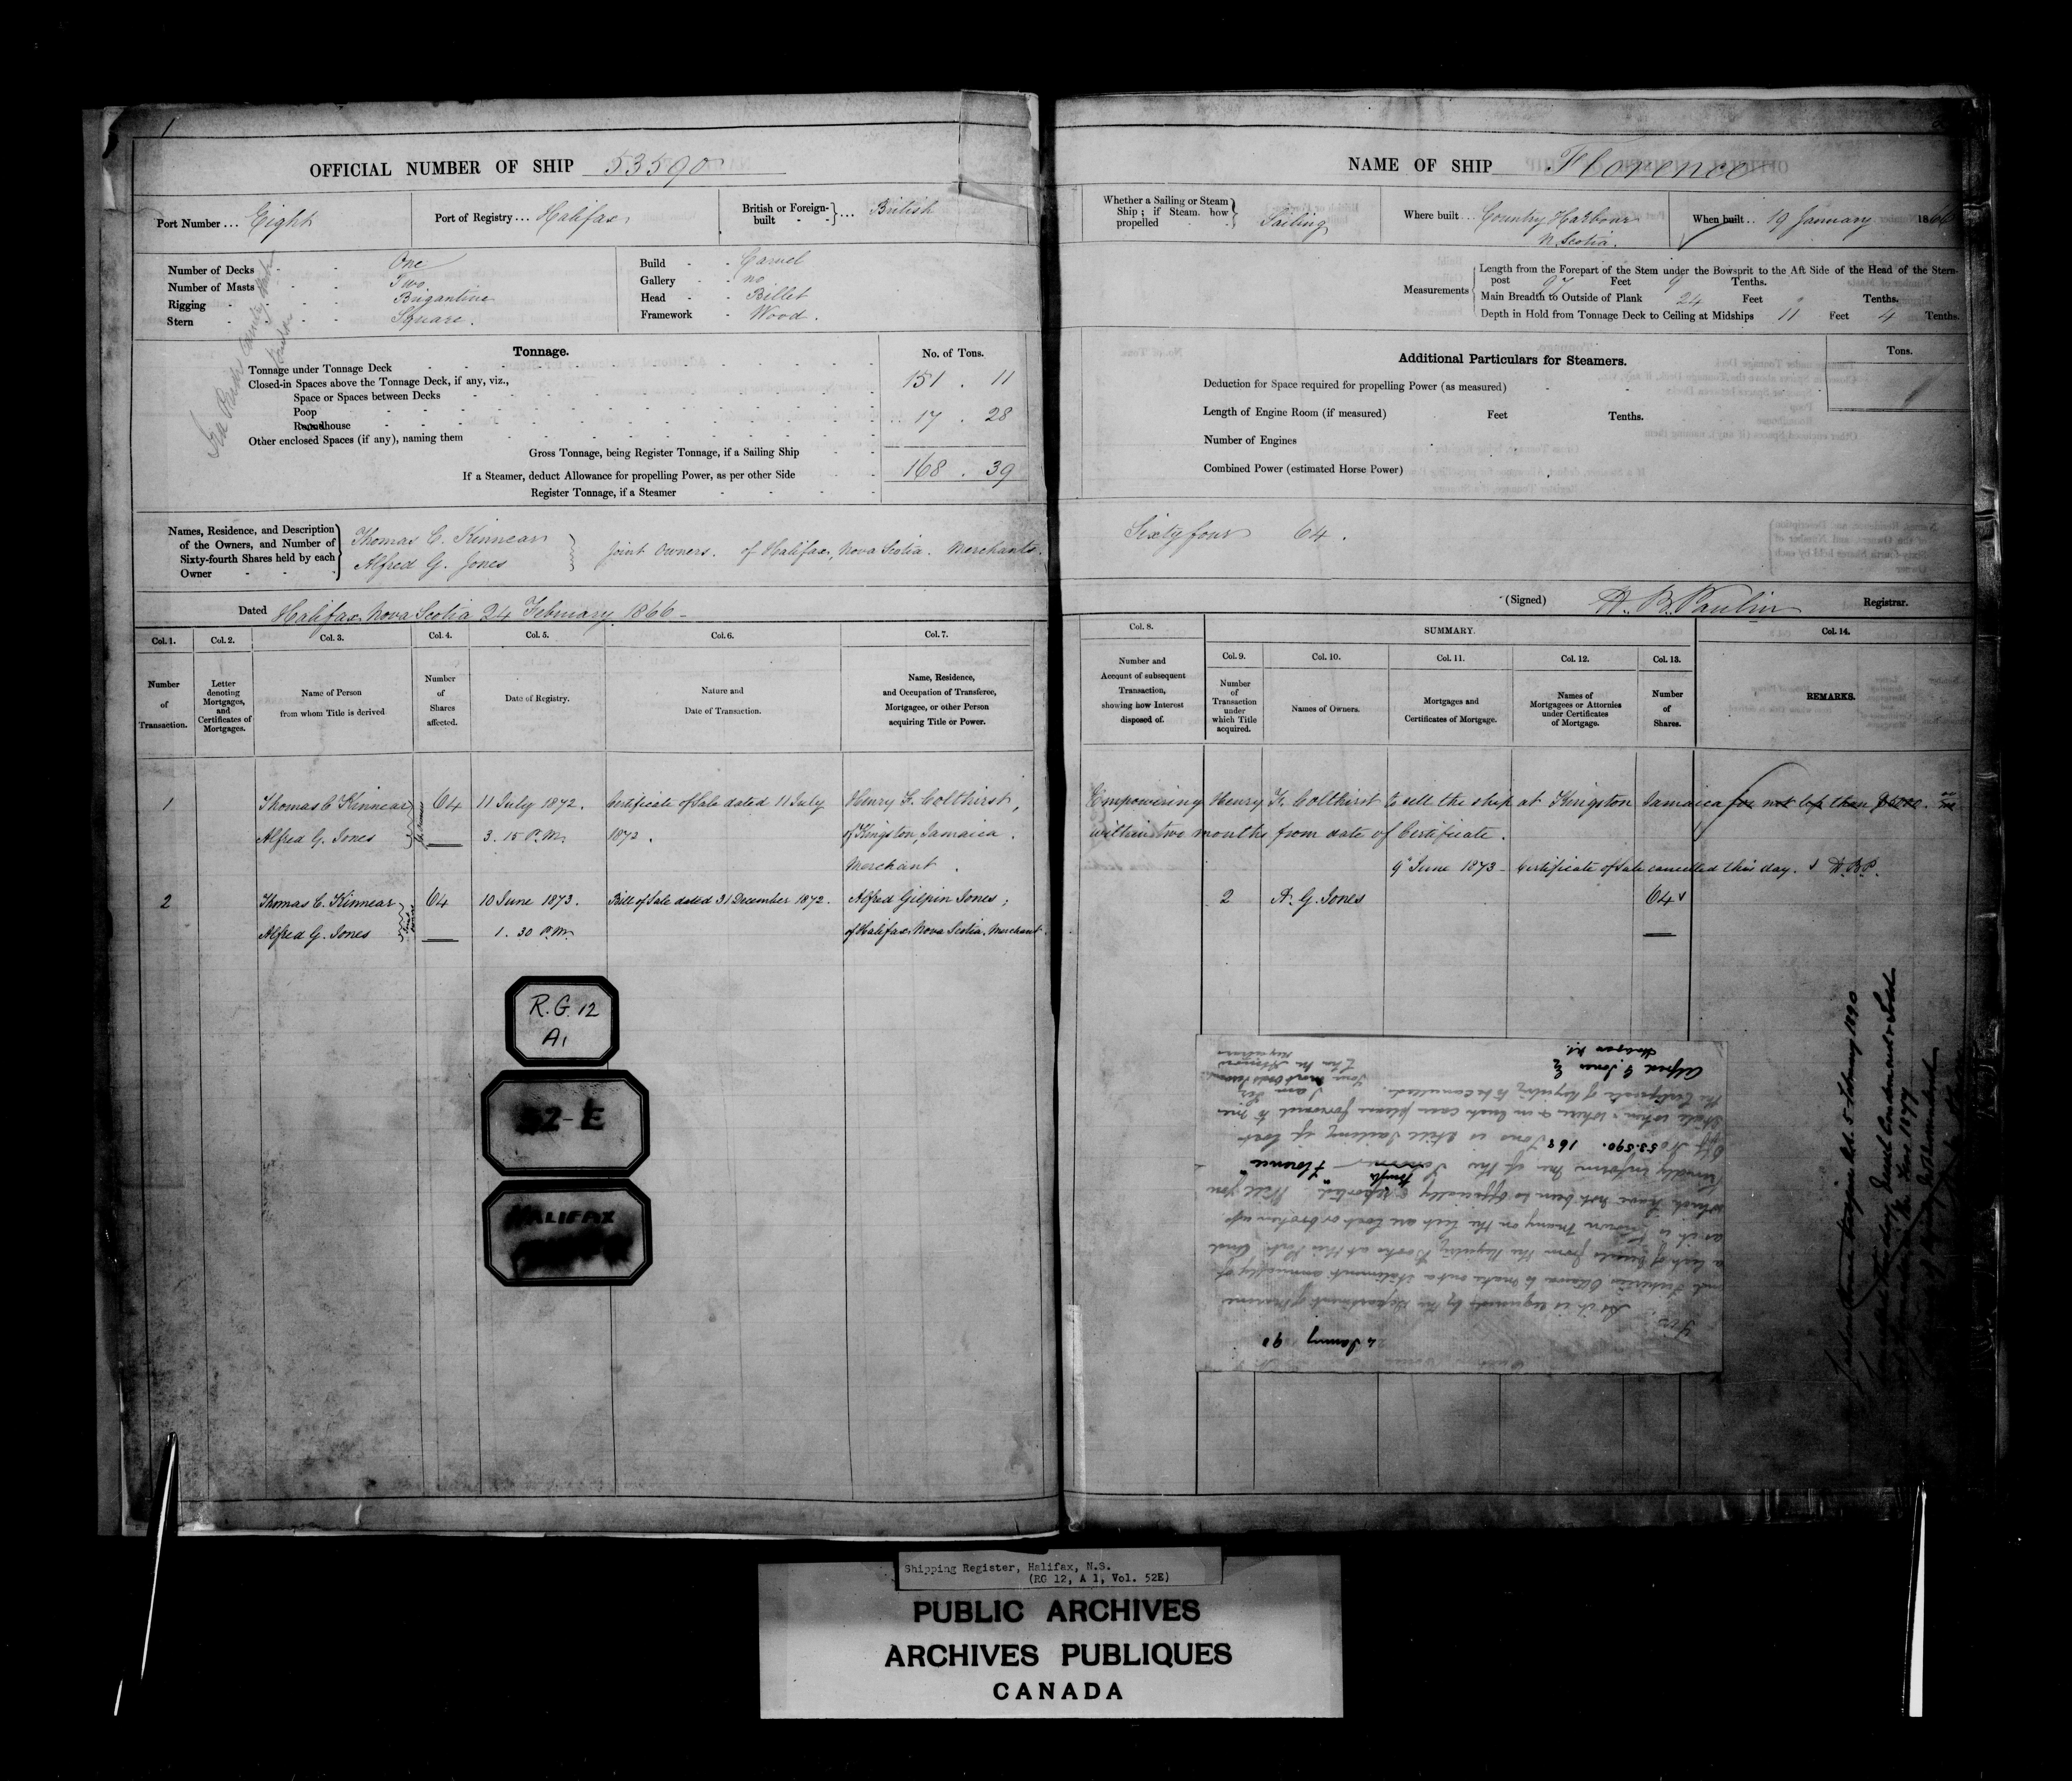 1
OFFICIAL NUMBER OF SHIP 53590
Port Number ... Eight
Port of Registry ... Halifax
British or Foreign-built - - } ... British
Number of Decks - - One
Number of Masts - - Two
Rigging - - - Brigantine
Stern - - - Square.
Build - - Carvel
Gallery - - no
Head - - Billet
Framework - Wood.
Tonnage.
No. of Tons.
Tonnage under Tonnage Deck 151 . 11
Closed-in Spaces above the Tonnage Deck, if any, viz.,
Space or Spaces between Decks
Poop
Roundhouse 17 . 28
Other enclosed Spaces (if any), naming them
Gross Tonnage, being Register Tonnage, if a Sailing Ship
If a Steamer, deduct Allowance for propelling Power, as per other Side 168 . 39
Register Tonnage, if a Steamer
Names, Residence, and Description of the Owners, and Number of Sixty-fourth Shares held by each Owner
Thomas C. Kinnear
Alfred G. Jones
Joint Owners. of Halifax, Nova Scotia. Merchants.
Dated Halifax Nova Scotia 24 February 1866 -
Col. 1. Col. 2. Col. 3. Col. 4. Col. 5. Col. 6. Col. 7.
Number of Transaction.
Letter denoting Mortgages, and Certificates of Mortgages.
Name of Person from whom Title is derived
Number of Shares affected.
Date of Registry.
Nature and Date of Transaction.
Name, Residence, and Occupation of Transferee, Mortgagee, or other Person acquiring Title or Power.
1 Thomas C Kinnear 64 11 July 1872. Certificate of Sale dated 11 July Henry F. Colthirst,
Alfred G. Jones 3. 15 P.M. 1872. of Kingston, Jamaica.
Merchant.
2 Thomas C. Kinnear 64 10 June 1873. Bill of Sale dated 31 December 1872. Alfred Gilpin Jones;
Alfred G. Jones 1. 30 P.M. of Halifax Nova Scotia. Merchant.
R.G. 12
A1
52-E
HALIFAX
NAME OF SHIP Florence
Whether a Sailing or Steam Ship; if Steam, how propelled } Sailing
Where built ... Country Harbour
N. Scotia.
When built .. 19 January 1866
Measurements
Length from the Forepart of the Stem under the Bowsprit to the Aft Side of the Head of the Stern-
post 97 Feet 9 Tenths.
Main Breadth to Outside of Plank 24 Feet " Tenths.
Depth in Hold from Tonnage Deck to Ceiling at Midships 11 Feet 4 Tenths.
Additional Particulars for Steamers.
Tons.
Deduction for Space required for propelling Power (as measured)
Length of Engine Room (if measured) Feet Tenths.
Number of Engines
Combined Power (estimated Horse Power)
Sixty four 64.
(Signed) H. B. Paulin Registrar.
Col. 8. SUMMARY. Col. 14.
Col. 9. Col. 10. Col. 11. Col. 12. Col. 13.
Number and Account of subsequent Transaction, showing how Interest disposed of.
Number of Transaction under which Title acquired.
Names of Owners.
Mortgages and Certificates of Mortgage.
Names of Mortgagees or Attornies under Certificates of Mortgage.
Number of Shares.
REMARKS.
Empowering Henry F. Colthirst to sell the ship at Kingston Jamaica for not less than $5000.
within two months from date of Certificate.
9th June 1873 - Certificate of Sale cancelled this day. H.B.P.
2 A. G. Jones 64
24 January 90
Sir
As it is required by the Department of Marine
and Fisheries Ottawa to make out a Statement annually of
a list of Vessels from the Registry Books at this Port. And
as it is known many on the list are lost or broken up
which have not been so officially reported. Will you
kindly inform me if the Brigt "Florence"
Off No 53.590. 168 Tons is still Sailing if lost
State when, & where & in such case please forward to me
the Certificate of Registry to be cancelled.
I am
Sir
Your most Obdt Servant
Registrar
Alfred G Jones Esq
Halifax N.S.
5 February 1890
Shipping Register, Halifax, N.S.
(RG 12, A 1, Vol. 52E)
PUBLIC ARCHIVES
ARCHIVES PUBLIQUES
CANADA